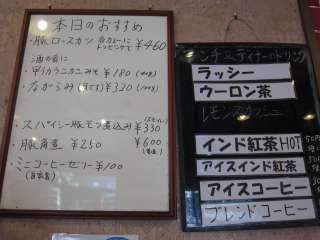 本日のおすすめ
・豚ロースカツ 各カレーに トッピングで ¥460
酒の肴に
・甲イカウニカニみそ ¥180
・ながらみ ¥320
・スパイシー豚モツ煮込み ¥330
・豚角煮 ¥250 ¥600
・ミニコーヒーゼリー ¥100
(自家製)
ンチ&ディナーのドリンク
ラッシー
ウーロン茶
レモンスカッシュ
インド紅茶HOT
アイスインド紅茶
アイスコーヒー
ブレンドコーヒー